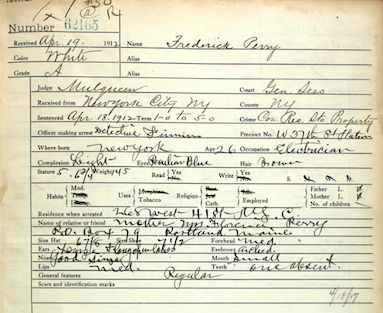 Number 62165
Received Apr 19. 1912 Name Frederick Perry
Color White Alias
Grade A Alias
Judge Mulqueen Court Gen Sess
Received from New York City NY County NY
Sentenced Apr. 18. 1912 Term 1-0 to 5-0 Crime Con Rec Sto Property
Officer making arrest Detective Precinct No. W 37th St Station
Where born New York Age 26 Occupation Electrician
Complexion Light Eyes Blue Hair Brown
Stature 5. Weight 145 Read Yes Write Yes
Habits Mod. Uses Tobacco Religion Cath. Employed Father L.
Mother L.
No. of children
Residence when arrested West 41 St N.Y.C.
Name of relative or friend Mother Mrs Florence Perry
P.O. Box 79 Portland Maine
Size Hat 6 7/8 Size Shoe 7 1/2 Forehead med
Ears Eyebrows arched
Nose good size Mouth small
Lips med. Teeth one absent.
General features Regular
Scars and identification marks
4/18/17